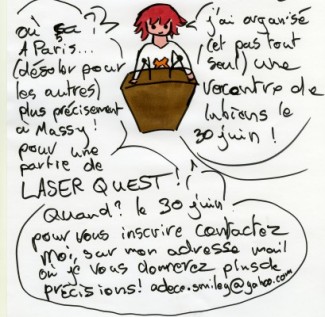 j'ai organisé
(et pas tout
seul) une
rencontre de
lubions le
30 juin !
où ça ?
A Paris...
(désolé pour
les autres)
plus précisément
à Massy !
pour une
partie de
LASER QUEST !
Quand ? le 30 juin.
pour vous inscrire contactez
moi, sur mon adresse mail
où je vous donnerez plus de
précisions ! adeco.smiley@yahoo.com